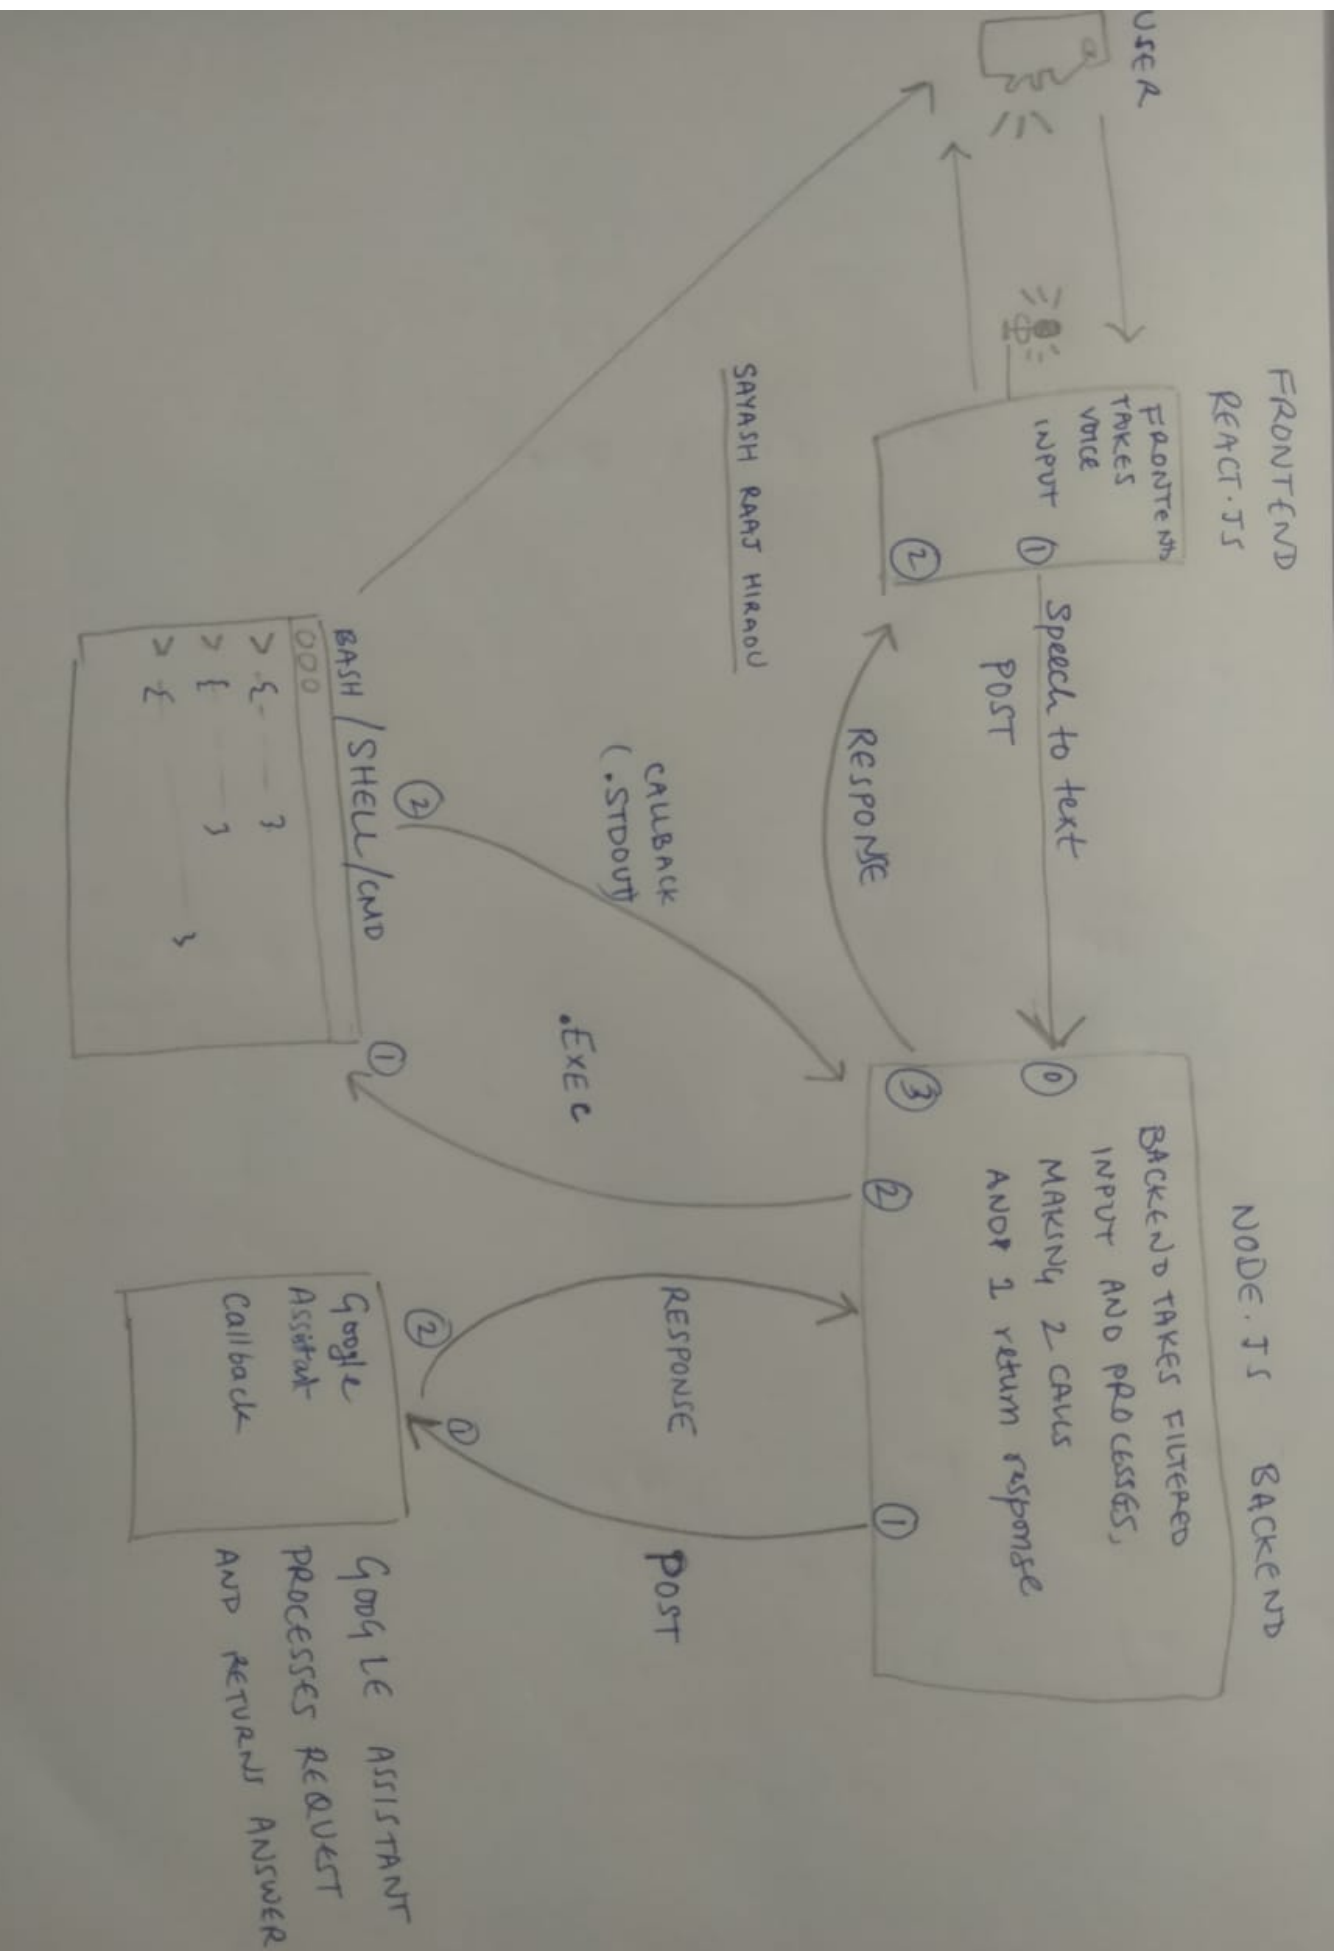 USER
FRONTEND
REACT.JS
FRONTEND
TAKES
VOICE
INPUT ①
②
Speech to text
POST
RESPONSE
SAYASH RAAJ HIRAOU
NODE.JS BACKEND
BACKEND TAKES FILTERED
INPUT AND PROCESSES,
⓪ MAKING 2 CALLS
AND 1 return response
③ ② ①
CALLBACK
(.STDOUT)
.EXEC
② ①
BASH/SHELL/CMD
> { }
> { }
> { }
RESPONSE
POST
② ①
Google
Assistant
Callback
GOOGLE ASSISTANT
PROCESSES REQUEST
AND RETURNS ANSWER